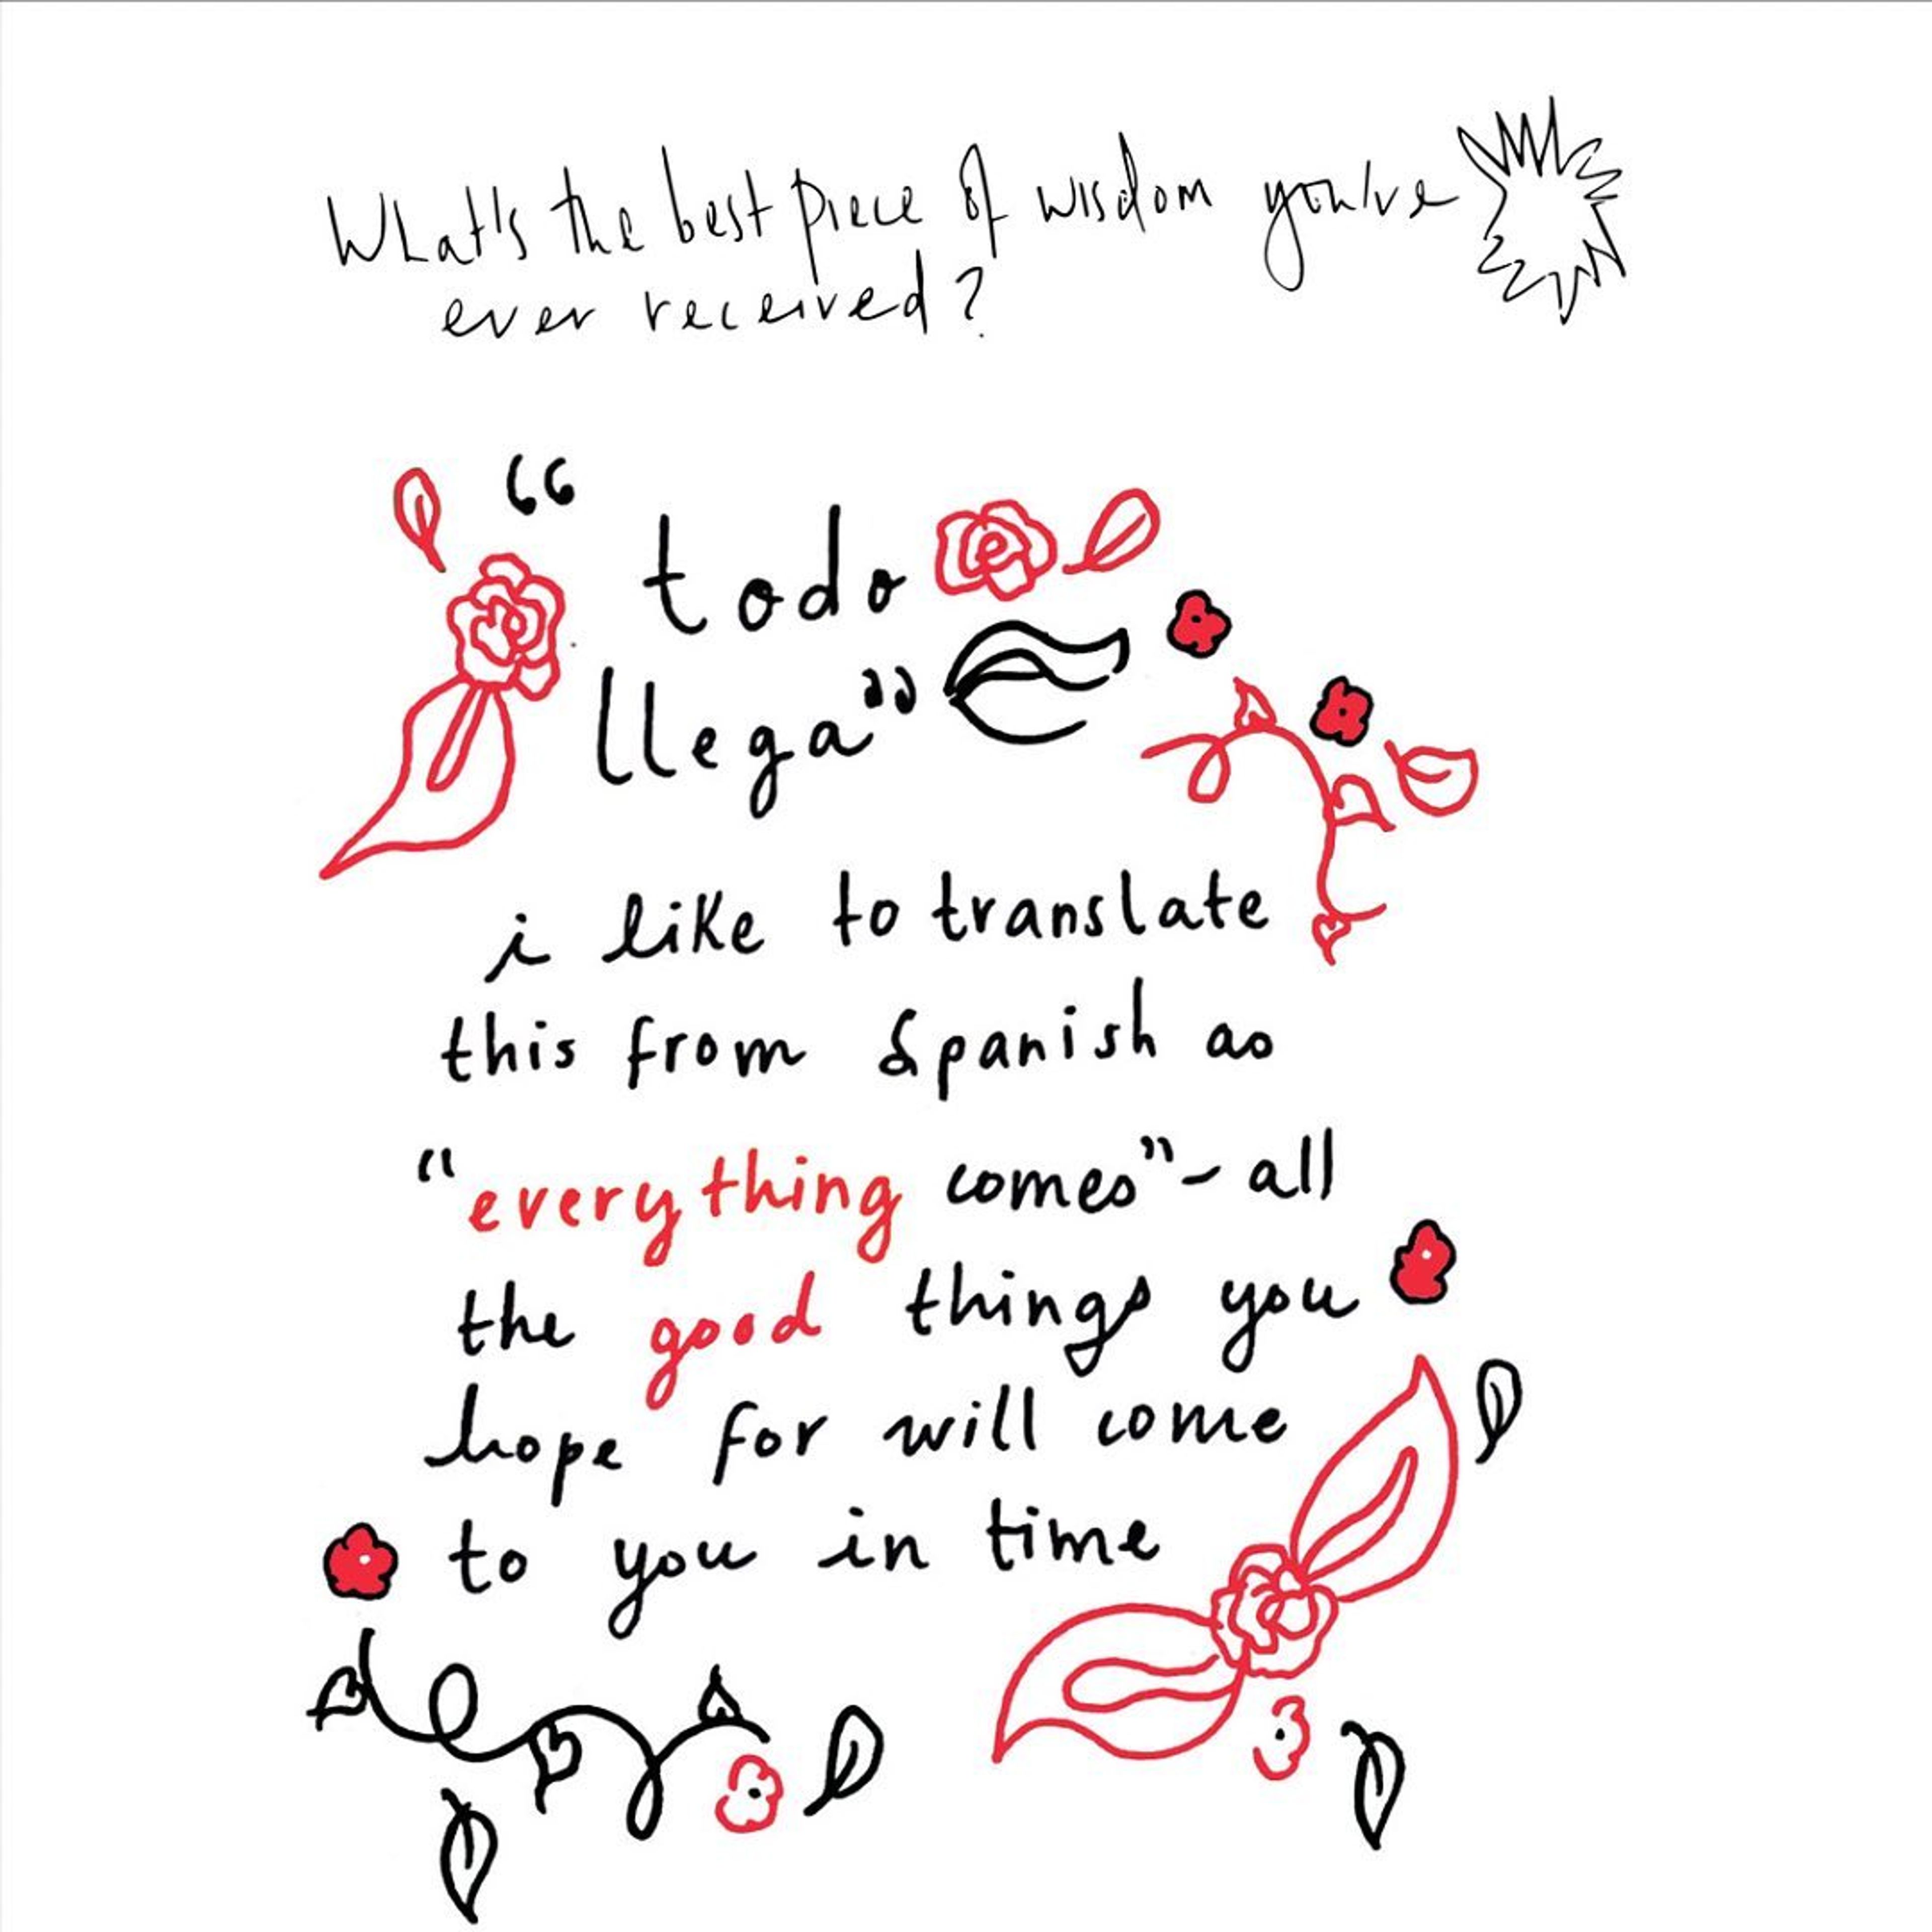 What's the best piece of wisdom you've
ever received?
“todo
llega”
i like to translate
this from Spanish as
“everything comes” - all
the good things you
hope for will come
to you in time